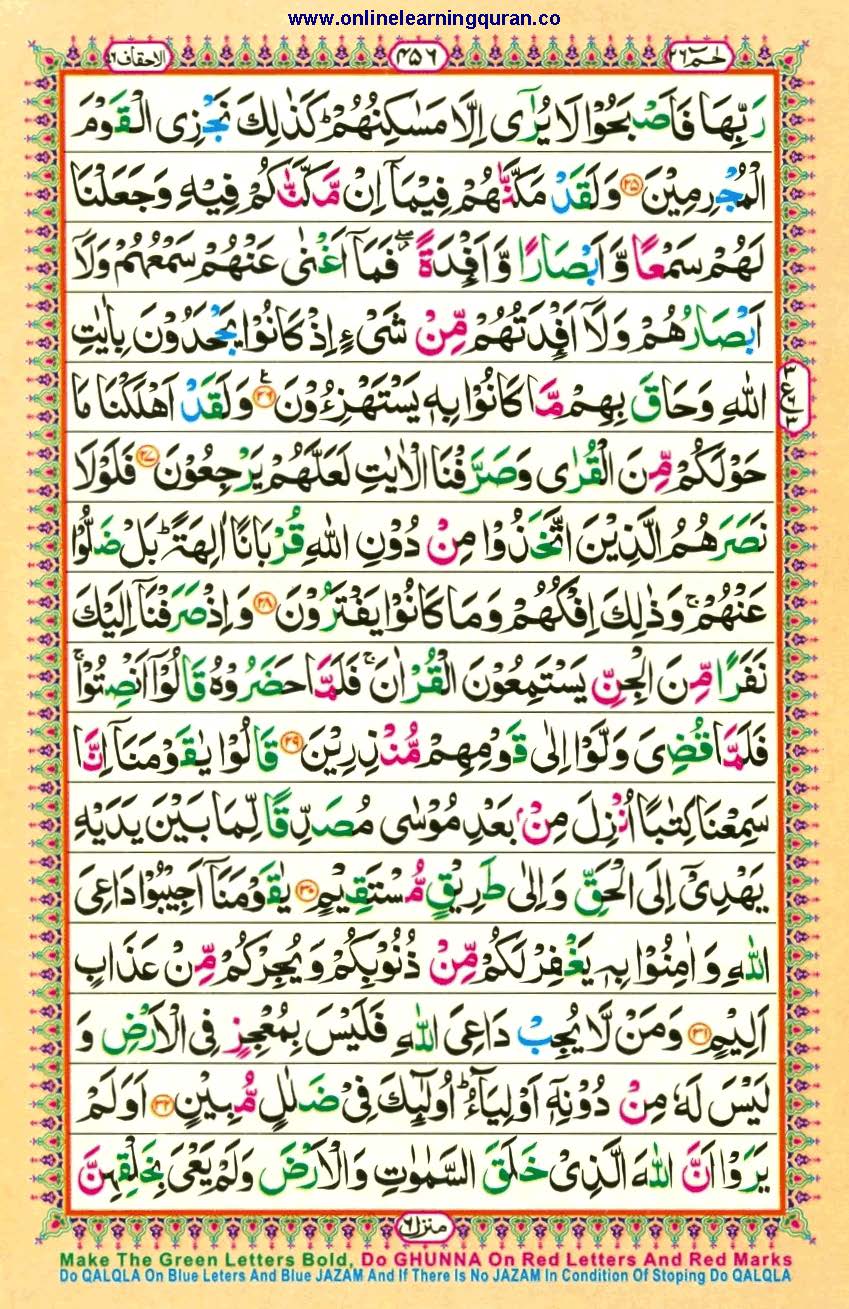 www.onlinelearningquran.co
الاحقاف ٤٦
٤٥٦
حٰمٓ ٢٦
رَبِّهَا فَاَصْبَحُوْا لَا يُرٰٓى اِلَّا مَسٰكِنُهُمْ ؕ كَذٰلِكَ نَجْزِى الْقَوْمَ
الْمُجْرِمِيْنَ ۝٢٥ وَلَقَدْ مَكَّنّٰهُمْ فِيْمَاۤ اِنْ مَّكَّنّٰكُمْ فِيْهِ وَجَعَلْنَا
لَهُمْ سَمْعًا وَّاَبْصَارًا وَّاَفْـِٕدَةً ۖ فَمَاۤ اَغْنٰى عَنْهُمْ سَمْعُهُمْ وَلَاۤ
اَبْصَارُهُمْ وَلَاۤ اَفْـِٕدَتُهُمْ مِّنْ شَىْءٍ اِذْ كَانُوْا يَجْحَدُوْنَ بِاٰيٰتِ
اللّٰهِ وَحَاقَ بِهِمْ مَّا كَانُوْا بِهٖ يَسْتَهْزِءُوْنَ ۝٢٦ وَلَقَدْ اَهْلَكْنَا مَا
حَوْلَكُمْ مِّنَ الْقُرٰى وَصَرَّفْنَا الْاٰيٰتِ لَعَلَّهُمْ يَرْجِعُوْنَ ۝٢٧ فَلَوْلَا
نَصَرَهُمُ الَّذِيْنَ اتَّخَذُوْا مِنْ دُوْنِ اللّٰهِ قُرْبَانًا اٰلِهَةً ؕ بَلْ ضَلُّوْا
عَنْهُمْ ۚ وَذٰلِكَ اِفْكُهُمْ وَمَا كَانُوْا يَفْتَرُوْنَ ۝٢٨ وَاِذْ صَرَفْنَاۤ اِلَيْكَ
نَفَرًا مِّنَ الْجِنِّ يَسْتَمِعُوْنَ الْقُرْاٰنَ ۚ فَلَمَّا حَضَرُوْهُ قَالُوْۤا اَنْصِتُوْا ۚ
فَلَمَّا قُضِىَ وَلَّوْا اِلٰى قَوْمِهِمْ مُّنْذِرِيْنَ ۝٢٩ قَالُوْا يٰقَوْمَنَاۤ اِنَّا
سَمِعْنَا كِتٰبًا اُنْزِلَ مِنْۢ بَعْدِ مُوْسٰى مُصَدِّقًا لِّمَا بَيْنَ يَدَيْهِ
يَهْدِىْۤ اِلَى الْحَقِّ وَاِلٰى طَرِيْقٍ مُّسْتَقِيْمٍ ۝٣٠ يٰقَوْمَنَاۤ اَجِيْبُوْا دَاعِىَ
اللّٰهِ وَاٰمِنُوْا بِهٖ يَغْفِرْ لَكُمْ مِّنْ ذُنُوْبِكُمْ وَيُجِرْكُمْ مِّنْ عَذَابٍ
اَلِيْمٍ ۝٣١ وَمَنْ لَّا يُجِبْ دَاعِىَ اللّٰهِ فَلَيْسَ بِمُعْجِزٍ فِى الْاَرْضِ وَ
لَيْسَ لَهٗ مِنْ دُوْنِهٖۤ اَوْلِيَآءُ ؕ اُولٰٓئِكَ فِىْ ضَلٰلٍ مُّبِيْنٍ ۝٣٢ اَوَلَمْ
يَرَوْا اَنَّ اللّٰهَ الَّذِىْ خَلَقَ السَّمٰوٰتِ وَالْاَرْضَ وَلَمْ يَعْىَ بِخَلْقِهِنَّ
منزل ٦
Make The Green Letters Bold, Do GHUNNA On Red Letters And Red Marks
Do QALQLA On Blue Leters And Blue JAZAM And If There Is No JAZAM In Condition Of Stoping Do QALQLA